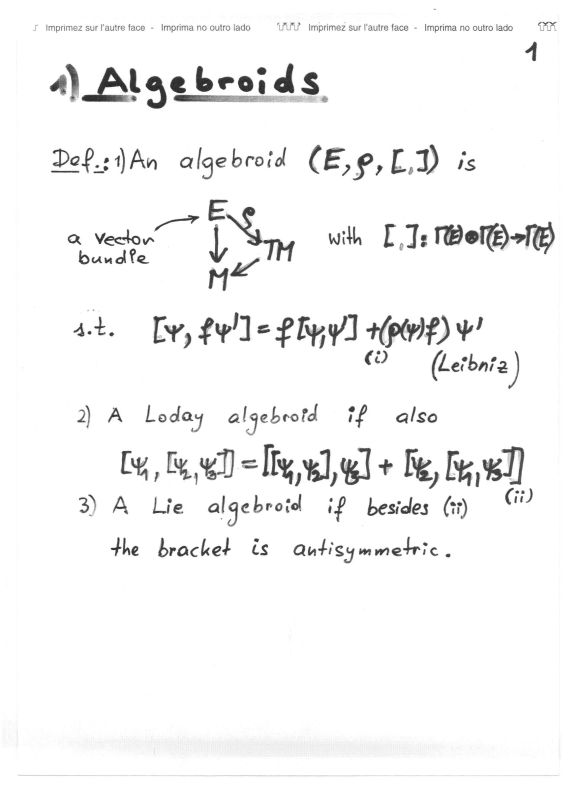 Imprimez sur l'autre face - Imprima no outro lado Imprimez sur l'autre face - Imprima no outro lado
1
1) Algebroids
Def.: 1) An algebroid (E, ρ, [,]) is
E ρ
a vector
bundle
TM
M
with [,]: Γ(E)⊗Γ(E)→Γ(E)
s.t. [ψ, fψ'] = f[ψ,ψ'] + (ρ(ψ)f) ψ'
(i) (Leibniz)
2) A Loday algebroid if also
[ψ₁, [ψ₂, ψ₃]] = [[ψ₁, ψ₂], ψ₃] + [ψ₂, [ψ₁, ψ₃]]
(ii)
3) A Lie algebroid if besides (ii)
the bracket is antisymmetric.